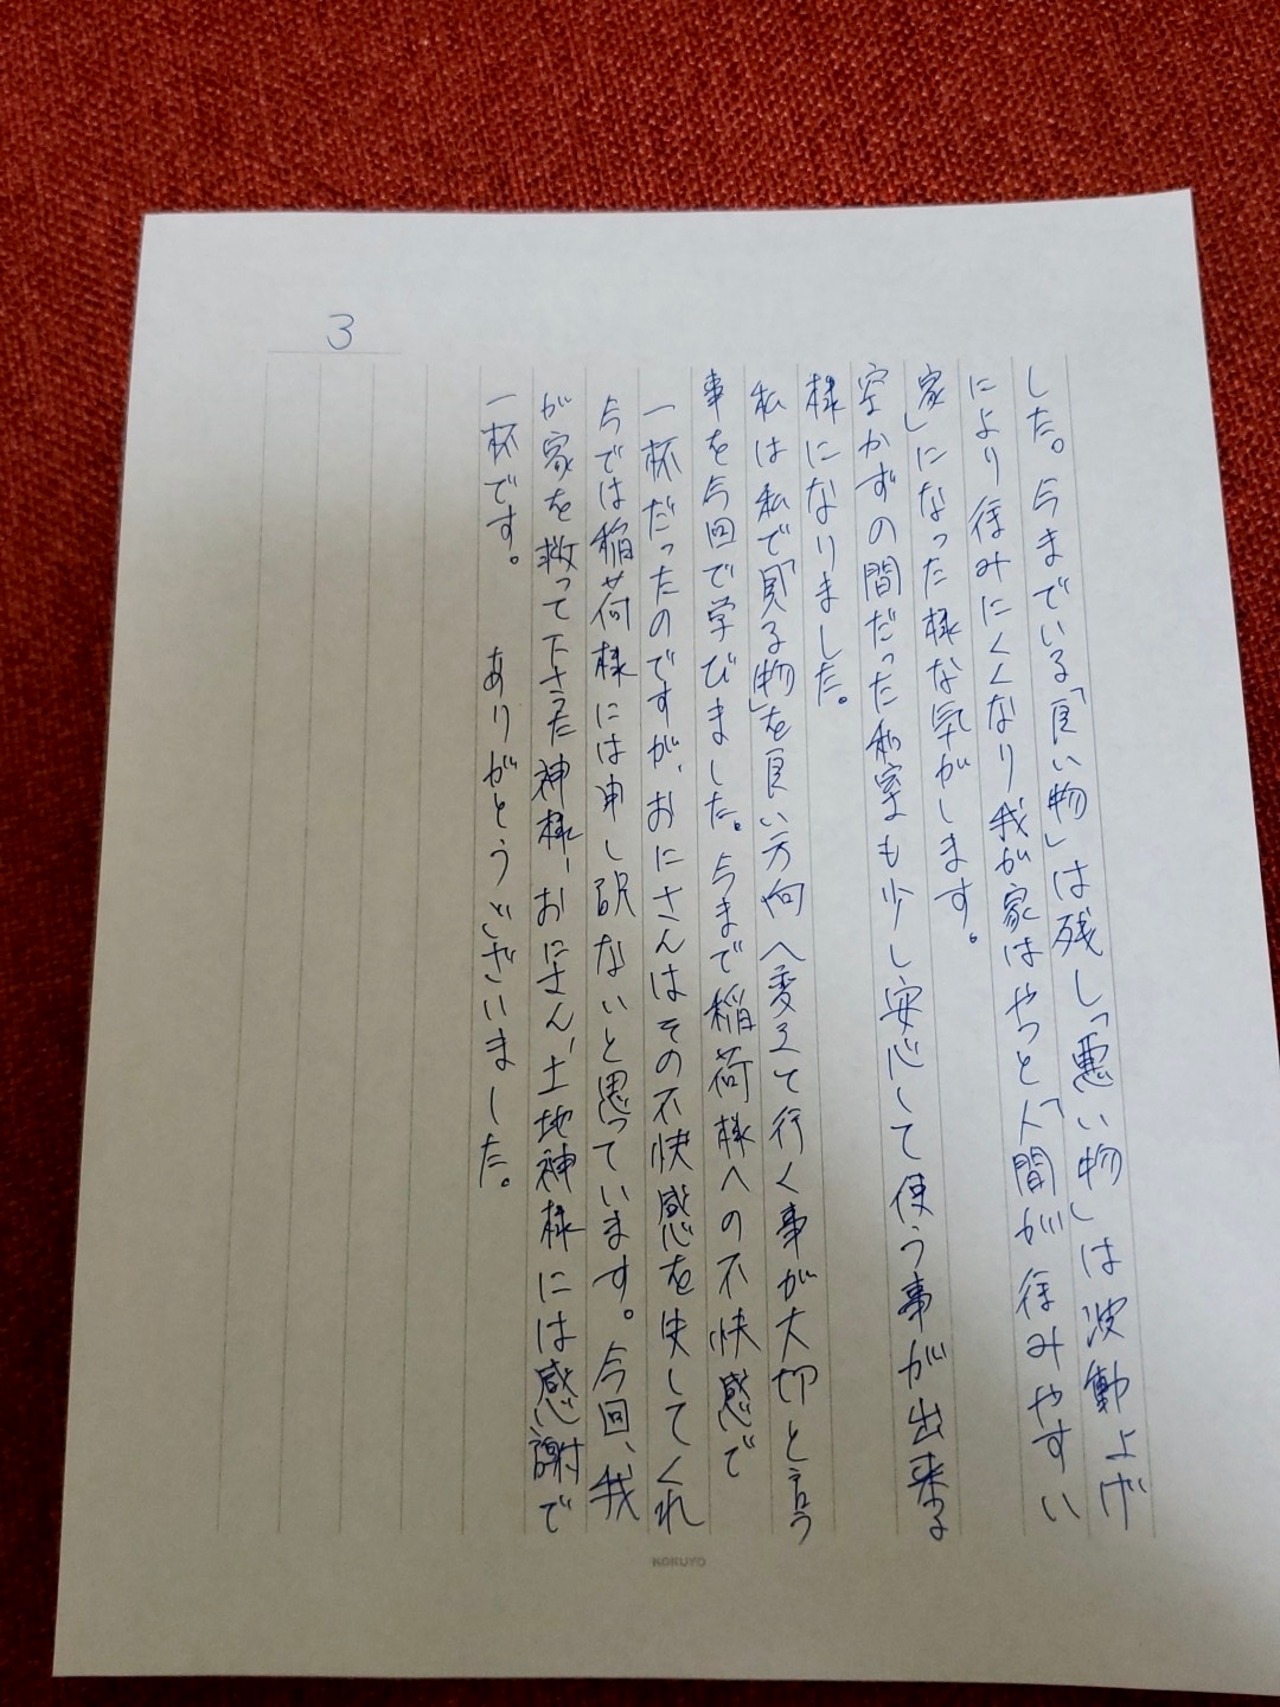 3
した。今までいる「良い物」は残し「悪い物」は波動上げ
により住みにくくなり我が家はやっと「人間が住みやすい
家」になった様な気がします。
空かずの間だった和室も少し安心して使う事が出来る
様になりました。
私は私で「見る物」を良い方向へ変えて行く事が大切と言う
事を今回で学びました。今まで稲荷様への不快感で
一杯だったのですが、おにさんはその不快感を失してくれ
今では稲荷様には申し訳ないと思っています。今回、我
が家を救って下さった神様、おにさん、土地神様には感謝で
一杯です。 ありがとうございました。
KOKUYO